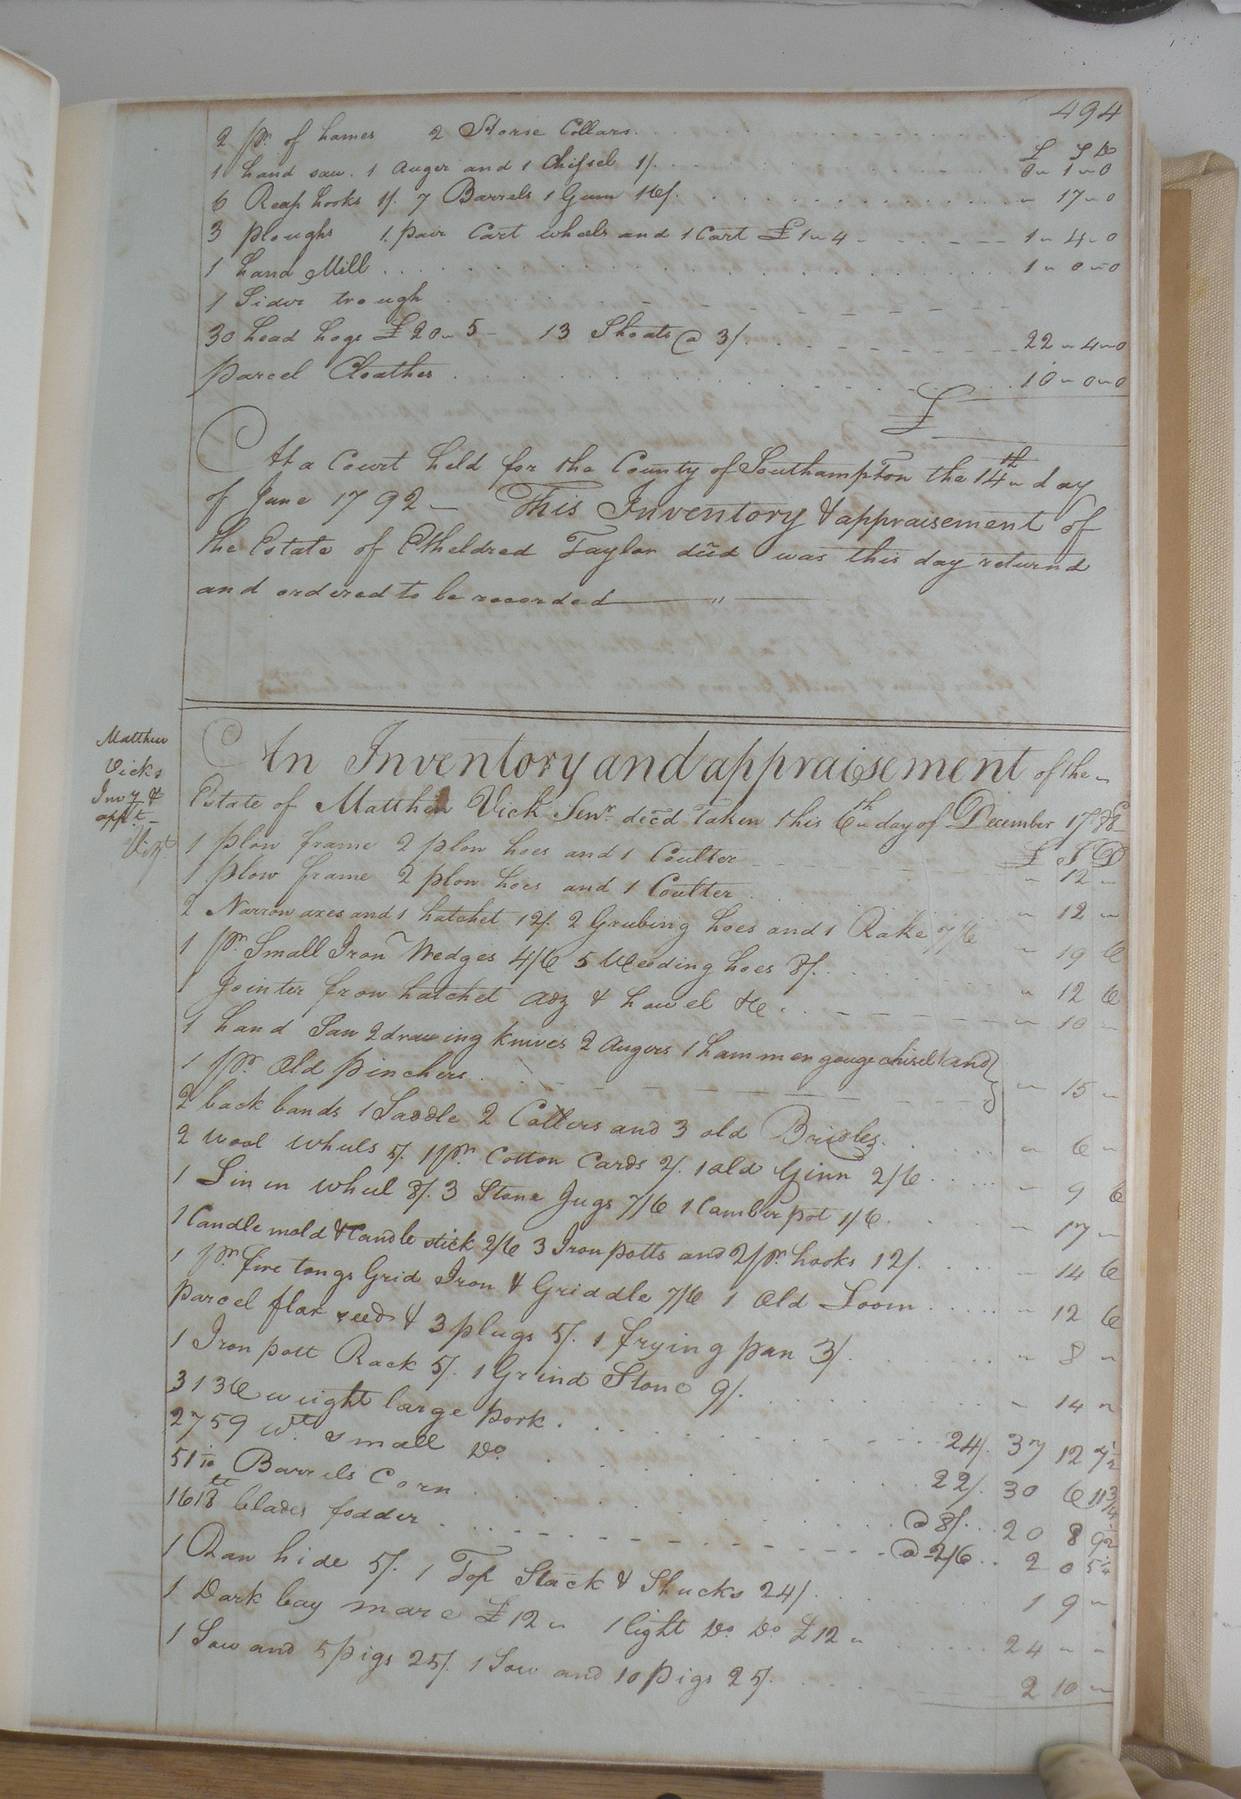 494
£ S D
2 pr. of hames 2 Horse Collars
1 hand saw. 1 Auger and 1 Chissel 1/. 0 " 1 " 0
6 Reap hooks 1/. 7 Barrels 1 Gum 16/. " 17 " 0
3 ploughs 1 pair Cart wheels and 1 Cart £1 " 4 1 " 4 " 0
1 hand Mill 1 " 0 " 0
1 Sider trough
30 head hogs £20 " 5 13 Shoats @ 3/. 22 " 4 " 0
parcel Cloathes 10 " 0 " 0
£
At a Court held for the County of Southampton the 14th day
of June 1792 This Inventory & appraisement of
the Estate of Etheldred Taylor decd was this day returnd
and ordered to be recorded
Matthew
Vicks
Invy &
appt.
An Inventory and appraisement of the
Estate of Matthew Vick Senr. decd Taken this 6th day of December 1788
Vizt £ S D
1 plow frame 2 plow hoes and 1 Coulter " 12 "
1 plow frame 2 plow hoes and 1 Coulter " 12 "
2 Narrow axes and 1 hatchet 12/. 2 Grubing hoes and 1 Rake 7/6 " 19 6
1 pr. Small Iron Wedges 4/6 5 Weeding hoes 8/. " 12 6
1 Jointer frow hatchet adz & howel &c. " 10 "
1 hand Saw 2 drawing knives 2 augers 1 hammer gouge chisel and
1 pr. Old pinchers " 15 "
2 back bands 1 Saddle 2 Collers and 3 old Bridles " 6 "
2 wool wheels 5/. 1 pr. Cotton Cards 2/. 1 old Ginn 2/6 " 9 6
1 Linen wheel 8/. 3 Stone Jugs 7/6 1 Camber pot 1/6 " 17 "
1 Candle mold & Candle stick 2/6 3 Iron potts and 2 pr. hooks 12/. " 14 6
1 pr. fire tongs Grid Iron & Griddle 7/6 1 Old Loom " 12 6
parcel flax seed & 3 plugs 5/. 1 frying pan 3/. " 8 "
1 Iron pott Rack 5/. 1 Grind Stone 9/. " 14 "
3136 weight large pork 24/. 37 12 7½
2759 Wt. small Do. 22/. 30 6 11¾
51 1/10 Barrels Corn @ 8/. 20 8 9½
1618 tt blades fodder @ 2/6 2 0 5¼
1 Raw hide 5/. 1 Top Stack & Shucks 24/. 1 9 "
1 Dark bay mare £12 " 1 light Do. Do £12 " 24 " "
1 Sow and 5 pigs 25/. 1 Sow and 10 pigs 25/. 2 10 "